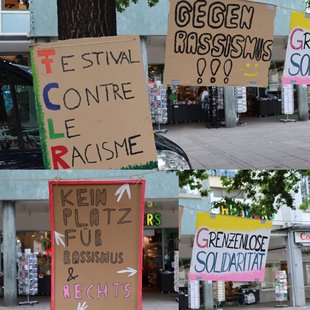 FESTIVAL
CONTRE
LE
RACISME
GEGEN
RASSISMUS
!!!
KEIN
PLATZ
FÜR
RASSISMUS
&
RECHTS
GRENZENLOSE
SOLIDARITÄT